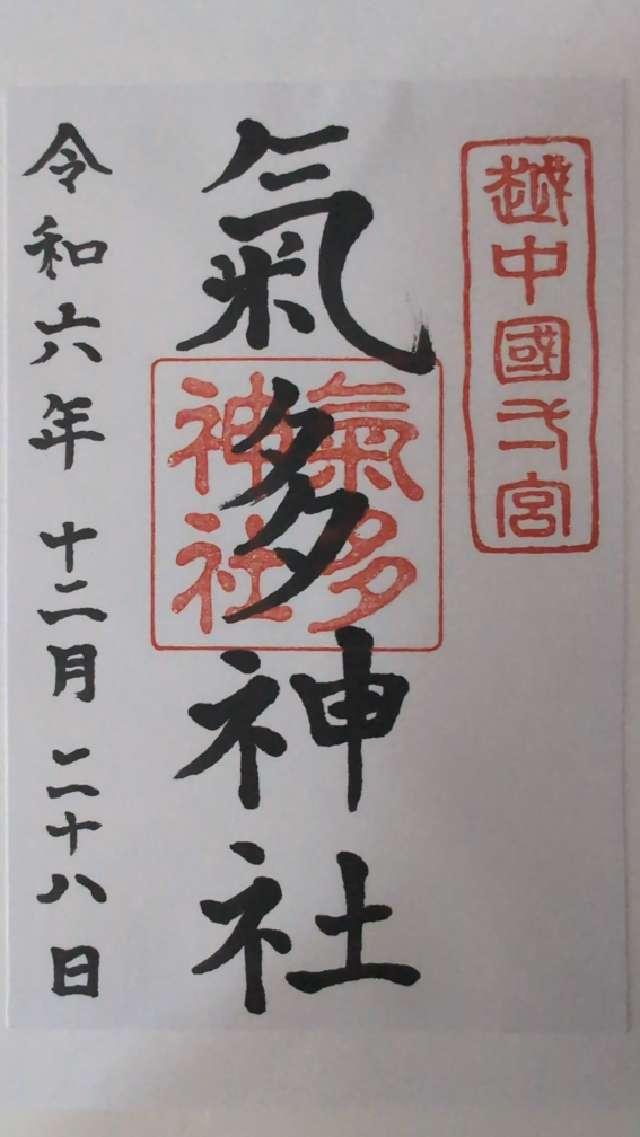 越中國弌宮
氣多神社
氣多
神社
令和六年十二月二十八日